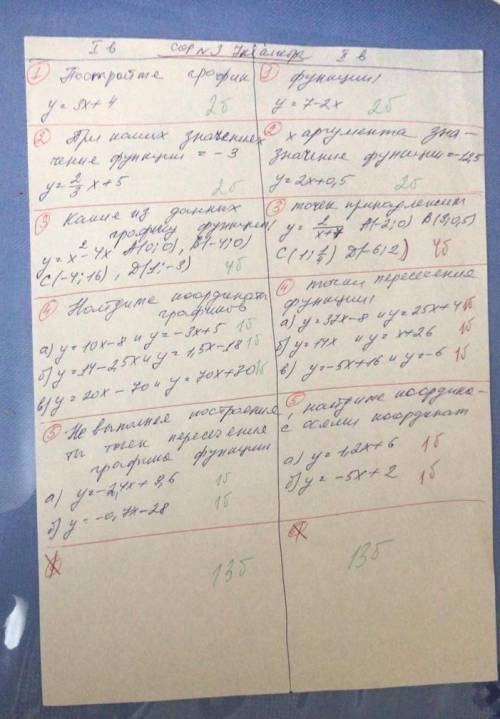 I в СОР №3 7кл алгебра II в
① Постройте график ① функции:
y = 3x + 4 2б y = 7 - 2x 2б
② При каких значениях ② x аргумента зна-
чение функции = -3 значение функции = -12,5
y = 2/3 x + 5 2б y = 2x + 0,5 2б
③ Какие из данных ③ точек принадлежит
графику функции: y = 2/(x+7) A(-2; 0) B(-3; 0,5)
y = x² - 4x A(0; 0), B(-4; 0) C(1; 1/4) D(-6; 2) 4б
C(-4; 16), D(1; -3) 4б
④ Найдите координаты ④ точки пересечения
графиков функции:
а) y = 10x - 8 и y = -3x + 5 1б а) y = 37x - 8 и y = 25x + 4 1б
б) y = 14 - 2,5x и y = 1,5x - 18 1б б) y = 14x и y = x + 26 1б
в) y = 20x - 70 и y = 70x + 30 1б в) y = -5x + 16 и y = -6 1б
⑤ Не выполняя построения ⑤, найдите координа-
ты точек пересечения с осями координат
графика функции
а) y = -2,4x + 9,6 1б а) y = 1,2x + 6 1б
б) y = -0,7x - 28 1б б) y = -5x + 2 1б
13б 13б